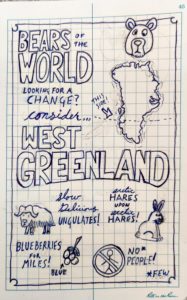 40
BEARS OF THE
WORLD
LOOKING FOR A
CHANGE?
consider...
THIS ONE
WEST
GREENLAND
slow
delicious
UNGULATES!
arctic
HARES
UPON
arctic
HARES!
BLUEBERRIES
FOR
MILES!
BLUE
NO*
PEOPLE!
*FEW